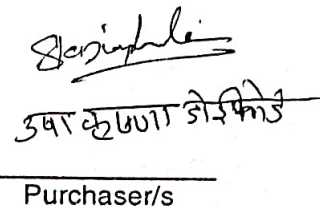 उषा कृष्णा डोईफोडे
Purchaser/s